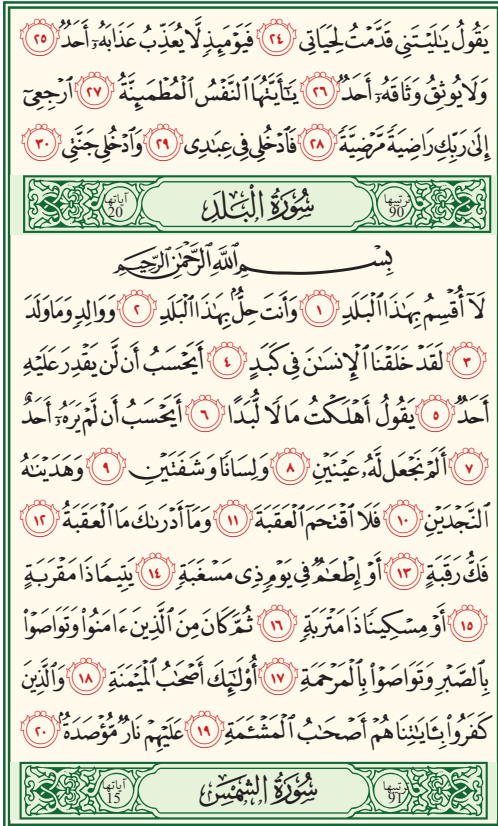 يَقُولُ يَٰلَيْتَنِى قَدَّمْتُ لِحَيَاتِى ٢٤ فَيَوْمَئِذٍ لَّا يُعَذِّبُ عَذَابَهُۥٓ أَحَدٌ ٢٥
وَلَا يُوثِقُ وَثَاقَهُۥٓ أَحَدٌ ٢٦ يَٰٓأَيَّتُهَا ٱلنَّفْسُ ٱلْمُطْمَئِنَّةُ ٢٧ ٱرْجِعِىٓ
إِلَىٰ رَبِّكِ رَاضِيَةً مَّرْضِيَّةً ٢٨ فَٱدْخُلِى فِى عِبَٰدِى ٢٩ وَٱدْخُلِى جَنَّتِى ٣٠
ترتيبها 90 سُورَةُ الْبَلَدِ آياتها 20
بِسْمِ ٱللَّهِ ٱلرَّحْمَٰنِ ٱلرَّحِيمِ
لَآ أُقْسِمُ بِهَٰذَا ٱلْبَلَدِ ١ وَأَنتَ حِلٌّۢ بِهَٰذَا ٱلْبَلَدِ ٢ وَوَالِدٍ وَمَا وَلَدَ
٣ لَقَدْ خَلَقْنَا ٱلْإِنسَٰنَ فِى كَبَدٍ ٤ أَيَحْسَبُ أَن لَّن يَقْدِرَ عَلَيْهِ
أَحَدٌ ٥ يَقُولُ أَهْلَكْتُ مَالًا لُّبَدًا ٦ أَيَحْسَبُ أَن لَّمْ يَرَهُۥٓ أَحَدٌ
٧ أَلَمْ نَجْعَل لَّهُۥ عَيْنَيْنِ ٨ وَلِسَانًا وَشَفَتَيْنِ ٩ وَهَدَيْنَٰهُ
ٱلنَّجْدَيْنِ ١٠ فَلَا ٱقْتَحَمَ ٱلْعَقَبَةَ ١١ وَمَآ أَدْرَىٰكَ مَا ٱلْعَقَبَةُ ١٢
فَكُّ رَقَبَةٍ ١٣ أَوْ إِطْعَٰمٌ فِى يَوْمٍ ذِى مَسْغَبَةٍ ١٤ يَتِيمًا ذَا مَقْرَبَةٍ
١٥ أَوْ مِسْكِينًا ذَا مَتْرَبَةٍ ١٦ ثُمَّ كَانَ مِنَ ٱلَّذِينَ ءَامَنُوا۟ وَتَوَاصَوْا۟
بِٱلصَّبْرِ وَتَوَاصَوْا۟ بِٱلْمَرْحَمَةِ ١٧ أُو۟لَٰٓئِكَ أَصْحَٰبُ ٱلْمَيْمَنَةِ ١٨ وَٱلَّذِينَ
كَفَرُوا۟ بِـَٔايَٰتِنَا هُمْ أَصْحَٰبُ ٱلْمَشْـَٔمَةِ ١٩ عَلَيْهِمْ نَارٌ مُّؤْصَدَةٌۢ ٢٠
ترتيبها 91 سُورَةُ الشَّمْسِ آياتها 15